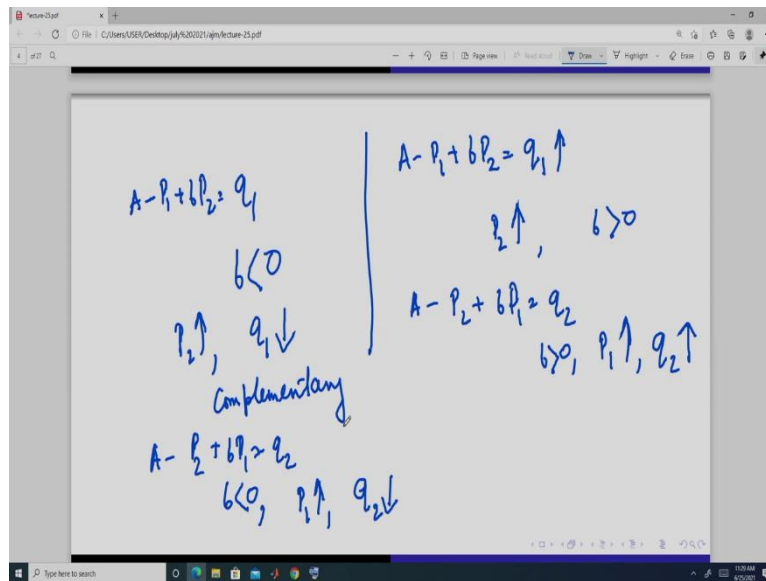 *lecture-25.pdf
File | C:/Users/USER/Desktop/july%202021/ajm/lecture-25.pdf
4 of 27
Page view
Read aloud
Draw
Highlight
Erase
A - P₁ + bP₂ = q₁
b < 0
P₂↑, q₁↓
Complementary
A - P₂ + bP₁ = q₂
b<0, P₁↑, q₂↓
A - P₁ + bP₂ = q₁↑
P₂↑, b>0
A - P₂ + bP₁ = q₂
b>0, P₁↑, q₂↑
Type here to search
11:29 AM
6/25/2021